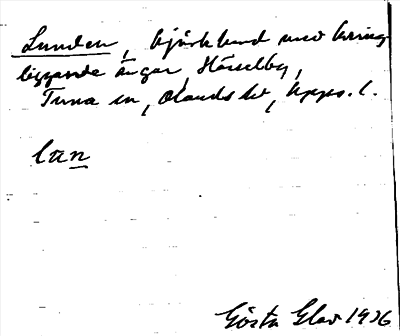 Lunden, björklund med kring
liggande ängar, Hässelby,
Tuna sn, Olands hd, Upps. l.
Gösta Elev 1936